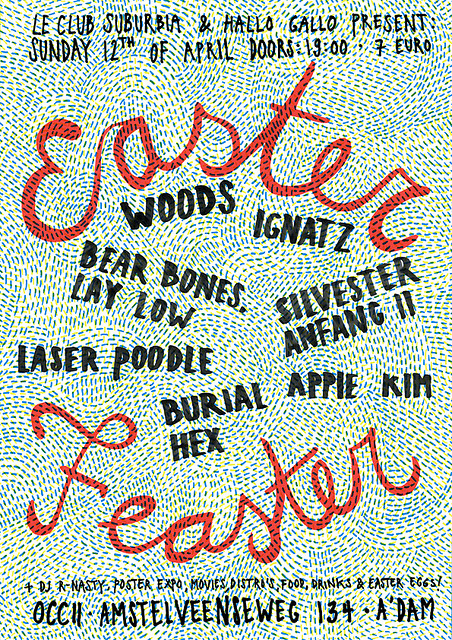 LE CLUB SUBURBIA & HALLO GALLO PRESENT:
SUNDAY 12TH OF APRIL DOORS: 19:00 · 7 EURO
Easter
WOODS
IGNATZ
BEAR BONES,
LAY LOW
SILVESTER
ANFANG II
LASER POODLE
BURIAL
HEX
APPIE KIM
Feaster
+ DJ R-NASTY, POSTER EXPO, MOVIES, DISTRO'S, FOOD, DRINKS & EASTER EGGS!
OCCII · AMSTELVEENSEWEG 134 · A'DAM